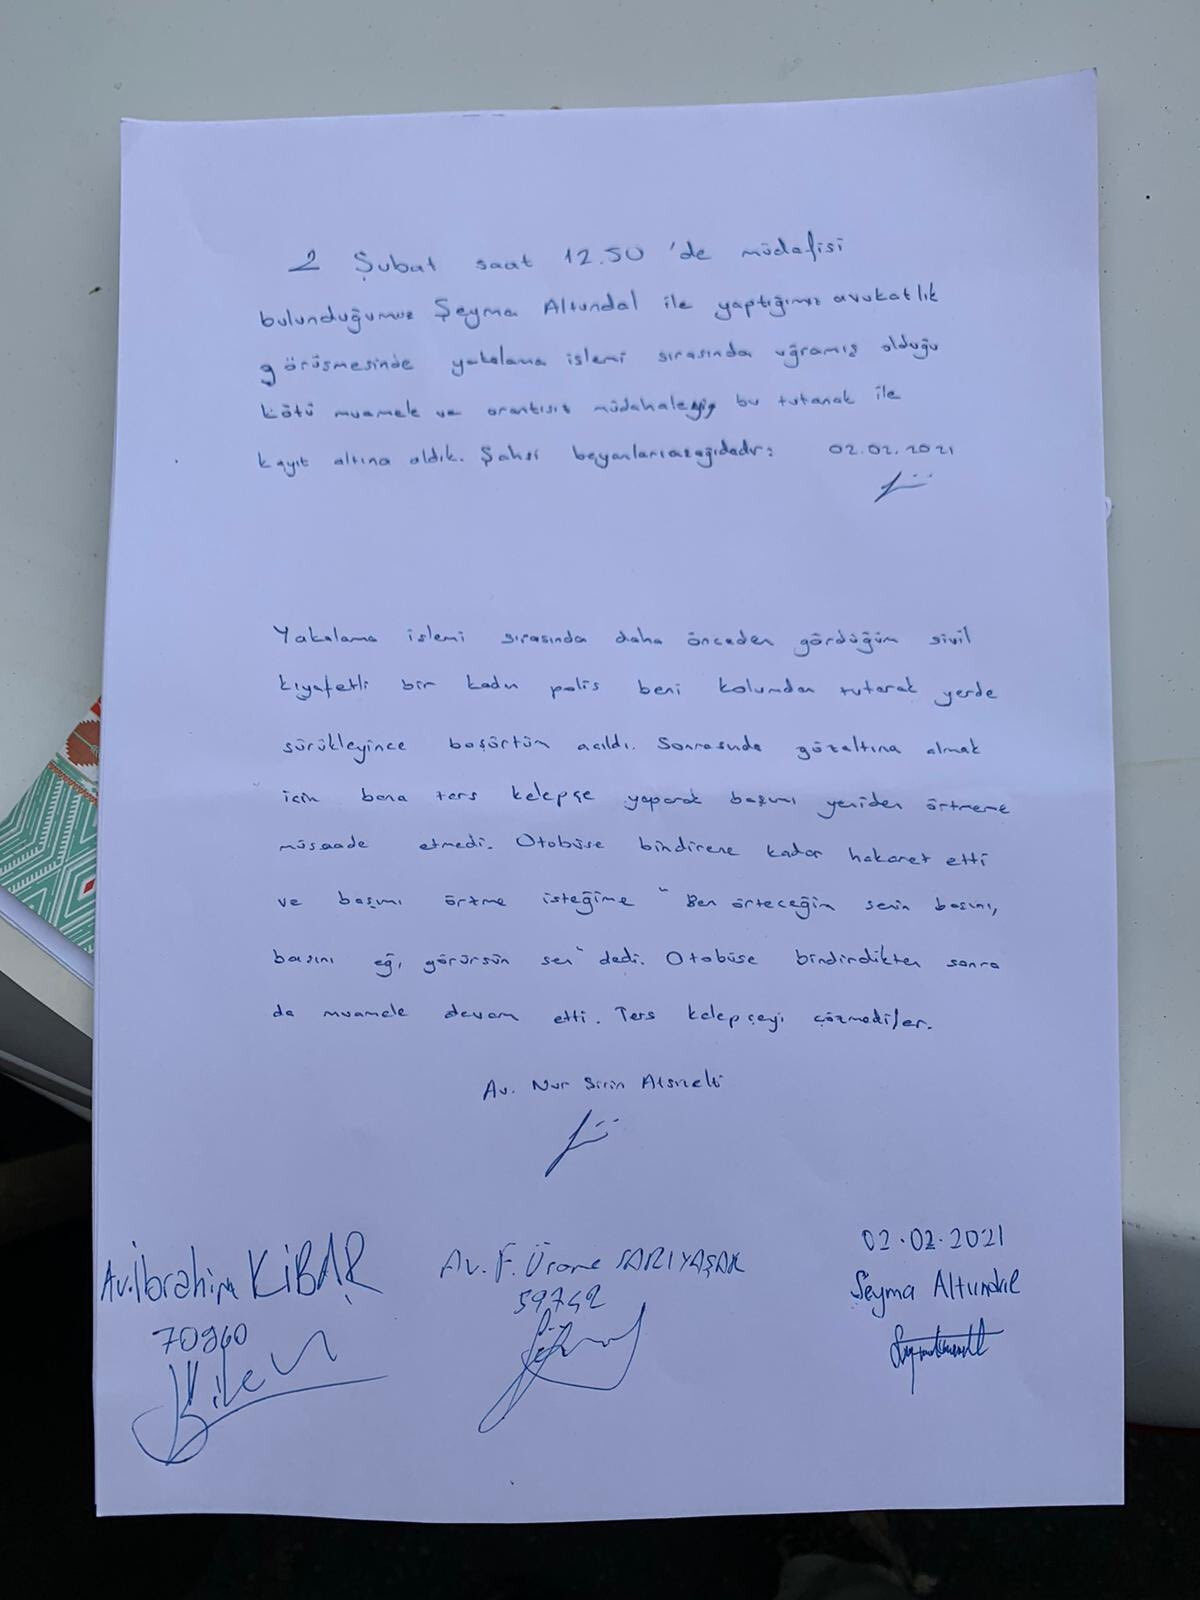 2 Şubat saat 12.50 'de müdafisi
bulunduğumuz Şeyma Altundal ile yaptığımız avukatlık
görüşmesinde yakalama işlemi sırasında uğramış olduğu
kötü muamele ve orantısız müdahaleyi bu tutanak ile
kayıt altına aldık. Şahsi beyanları aşağıdadır: 02.02.2021
Yakalama işlemi sırasında daha önceden gördüğüm sivil
kıyafetli bir kadın polis beni kolumdan tutarak yerde
sürükleyince başörtüm açıldı. Sonrasında gözaltına almak
için bana ters kelepçe yaparak başımı yeniden örtmeme
müsaade etmedi. Otobüse bindirene kadar hakaret etti
ve başımı örtme isteğime "Ben örteceğim senin başını,
başını eğ, görürsün sen" dedi. Otobüse bindirdikten sonra
da muamele devam etti. Ters kelepçeyi çözmediler.
Av. Nur Şirin
Av. İbrahim KİBAR
Av. F. SARIYAŞAR
59742
02.02.2021
Şeyma Altundal